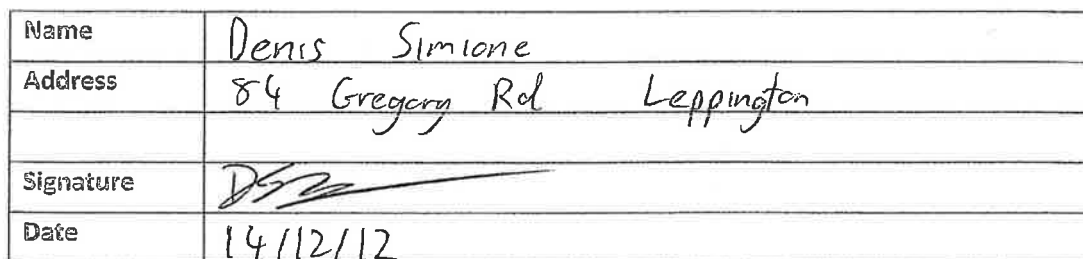 Name Denis Simione
Address 84 Gregory Rd Leppington
Signature
Date 14/12/12